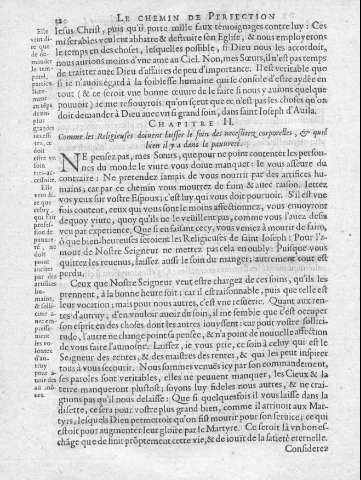 LE CHEMIN DE PERFECTION
Iesus Christ, puis qu'il porte mille faux témoignages contre luy: Ces
miserables veulent abbatre & destruire son Eglise, & nous employerons
le temps en des choses, lesquelles possible, si Dieu nous les accordoit,
nous aurions moins d'vne ame au Ciel. Non, mes Sœurs, il n'est pas temps
de traitter auec Dieu d'affaires de peu d'importance. Il est veritable que
si ie n'auois égard à la foiblesse humaine qui se console d'estre aydée en
tout (& ce seroit vne bonne œuure de le faire si nous y auions quelque
pouuoir) ie me resiouyrois qu'on sçeut que ce n'est pas les choses qu'on
doit demander à Dieu auec vn si grand soin, dans saint Ioseph d'Auila.
CHAPITRE II.
Comme les Religieuses doiuent laisser le soin des necessitez corporelles, & quel
bien il y a dans la pauureté.
NE pensez pas, mes Sœurs, que pour ne point contenter les person-
nes du monde le viure vous doiue manquer: ie vous asseure du
contraire: Ne pretendez iamais de vous nourrir par des artifices hu-
mains; car par ce chemin vous mourrez de faim & auec raison. Iettez
vos yeux sur vostre Espoux; c'est luy qui vous doit pouruoir. S'il est vne
fois content, ceux qui vous sont le moins affectionnez, vous enuoyront
dequoy viure, quoy qu'ils ne le veüillent pas, comme vous l'auez deja
veu par experience. Que si en faisant cecy, vous veniez à mourir de faim,
ô que bien-heureuses seroient les Religieuses de saint Ioseph! Pour l'a-
mour de Nostre Seigneur ne mettez pas cela en oubly: Puisque vous
quittez les reuenus, laissez aussi le soin du manger; autrement tout est
perdu.
Ceux que Nostre Seigneur veut estre chargez de ces soins, qu'ils les
prennent, à la bonne heure soit; car il est raisonnable, puis que telle est
leur vocation; mais pour nous autres, c'est vne resuerie. Quant aux ren-
tes d'autruy, d'en vouloir auoir du soin, il me semble que c'est occuper
son esprit en des choses dont les autres iouyssent: car pour vostre sollici-
tude, l'autre ne change point sa pensée, & n'a point de nouuelle affection
de vous faire l'aumosne. Laissez, ie vous prie, ce soin à celuy qui est le
Seigneur des rentes, & des maistres des rentes, & qui les peut inspirer
tous à vous secourir. Nous sommes venuës icy par son commandement,
ses paroles sont veritables, elles ne peuuent manquer, les Cieux & la
terre manqueront plustost; soyons luy fideles nous autres, & ne crai-
gnons pas qu'il nous delaisse: Que si quelquesfois il vous laisse dans la
disette, ce sera pour vostre plus grand bien, comme il arriuoit aux Mar-
tyrs, lesquels Dieu permettoit qu'on fist mourir pour son seruice; ce qui
estoit pour augmenter leur gloire par le Martyre. Ce seroit là vn bon es-
châge que de finir prôptement cette vie, & de iouïr de la satieté eternelle.
Considerez